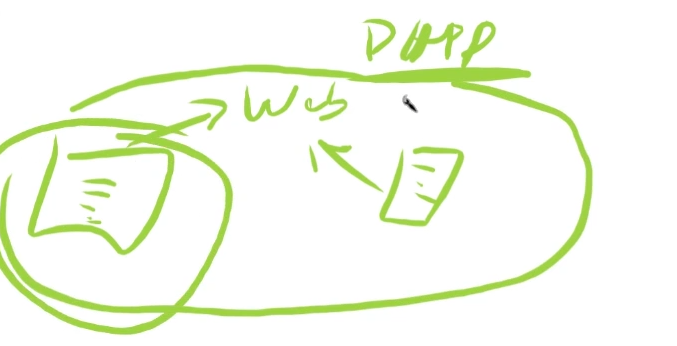 DAPP
Web